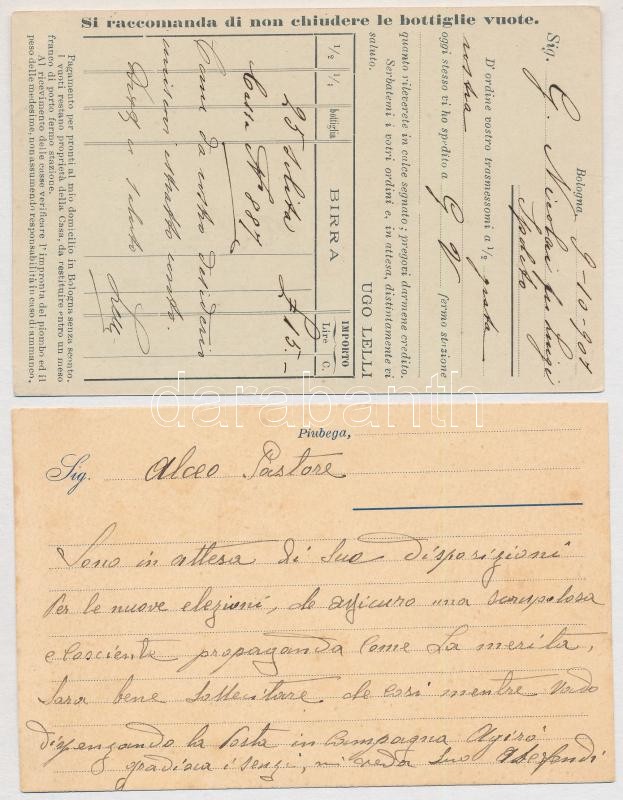 Si raccomanda di non chiudere le bottiglie vuote.
Bologna, 9-10-907
Sig. G. Nicolai fu Luigi
Spoleto
D'ordine vostro trasmessomi a 1/2 grata
nostra
oggi stesso vi ho spedito a G V fermo stazione
quanto rileverete in calce segnato; pregovi darmene credito.
Serbatemi i vostri ordini e, in attesa, distintamente vi
saluto.
UGO LELLI
1/2 1/1 bottiglia BIRRA IMPORTO
Lire C.
25 £ 15.-
Cassa No 887
Come da vostro desiderio
estratto conto.
saluto
Lelli
Pagamento per pronti al mio domicilio in Bologna senza sconto.
I vuoti restano proprietà della Casa, da restituire entro un mese
franco di porto fermo stazione.
Al ricevimento delle casse verificare l'impronta del piombo ed il
peso delle medesime, non assumendo responsabilità in caso di ammanco.
darabanth
Piubega,
Sig. Alceo Pastore
Sono in attesa di Suo disposizioni
Per le nuove elezioni, la una scrupolosa
e cosciente propaganda come La merita,
Sara bene sollecitare de cosi mentre vado
dispenzando la Posta in Campagna
gradisca i mi veda Suo